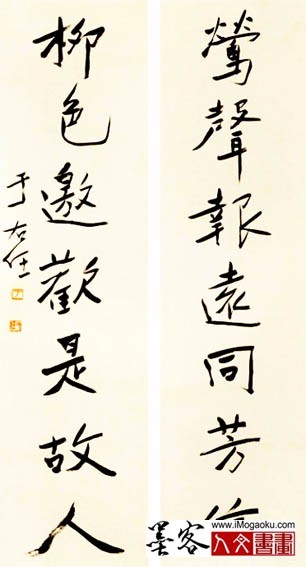 鶯聲報遠同芳
柳色邀歡是故人
于右任
墨客
www.iMogaoku.com
人文書畫